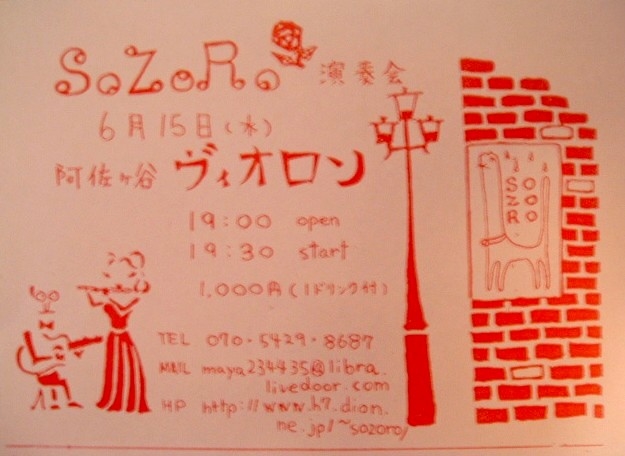 SoZoRo 演奏会
6月15日(水)
阿佐ヶ谷 ヴィオロン
19:00 open
19:30 start
1,000円(1ドリンク付)
TEL 070-5429-8687
MAIL maya234435@libra.
livedoor.com
HP http://www.h7.dion.
ne.jp/~sozoro/
SO
ZO
RO